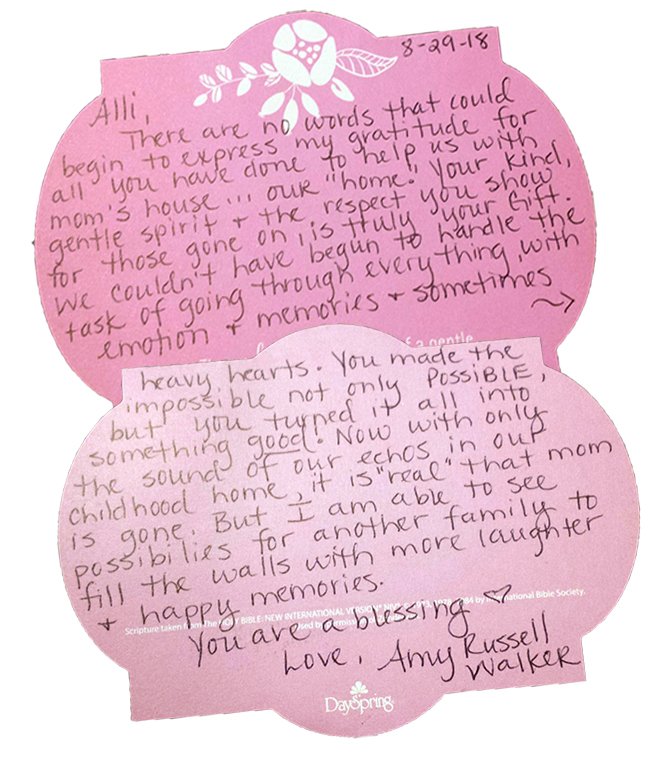 8-29-18
Alli,
There are no words that could
begin to express my gratitude for
all you have done to help us with
mom's house... our "home." Your kind,
gentle spirit + the respect you show
for those gone on, is truly your Gift.
We couldn't have begun to handle the
task of going through everything, with
emotion + memories + sometimes
→
of a gentle
heavy hearts. You made the
impossible not only POSSIBLE,
but you turned it all into
something good! Now with only
the sound of our echos in our
childhood home, it is "real" that mom
is gone. But I am able to see
possibilies for another family to
fill the walls with more laughter
+ happy memories.
Scripture taken from the HOLY BIBLE: NEW INTERNATIONAL VERSION® 1984 by International Bible Society.
You are a blessing ♡
Love, Amy Russell
Walker
DaySpring